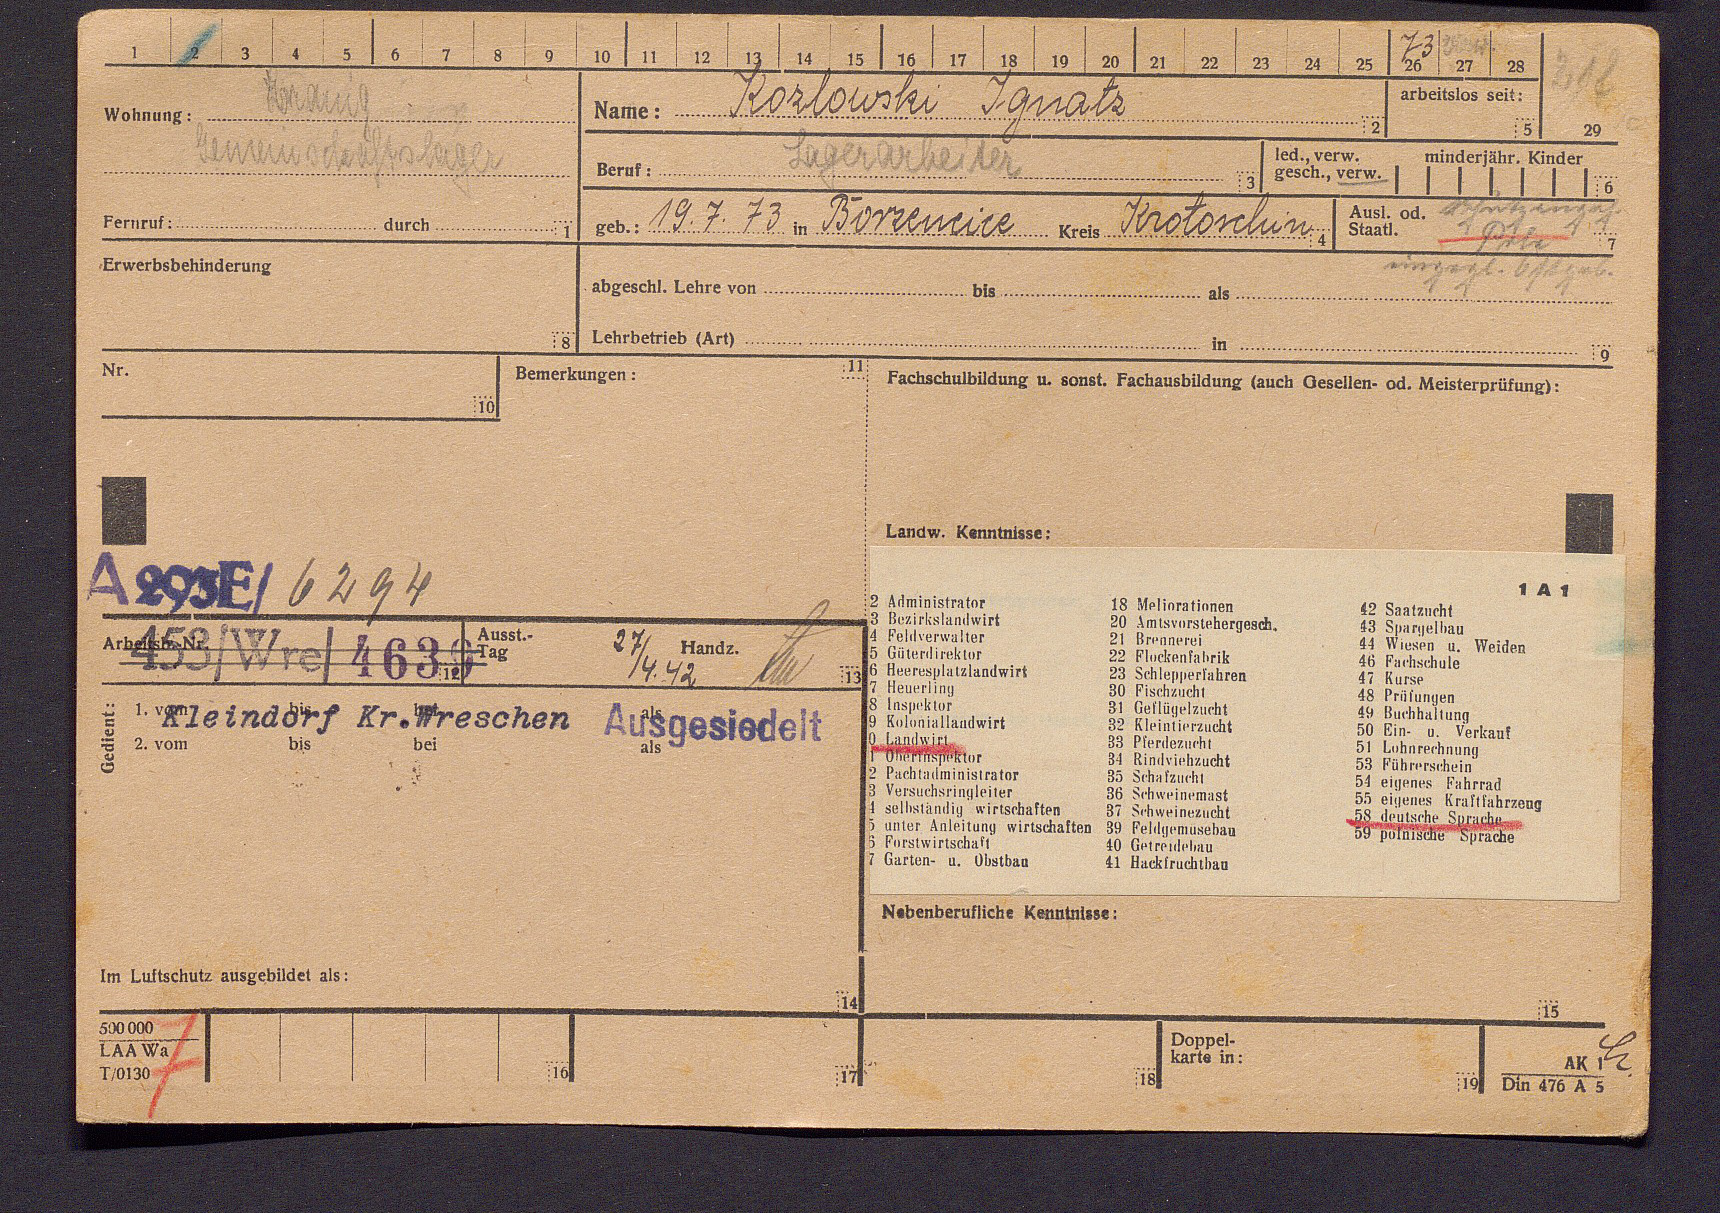 1 2 3 4 5 6 7 8 9 10 11 12 13 14 15 16 17 18 19 20 21 22 23 24 25 26 27 28
73
Wohnung:
Gemeinschaftslager
Fernruf: durch 1
Name: Kozlowski Ignatz 2
arbeitslos seit: 5
29
Beruf: Lagerarbeiter 3
led., verw.
gesch., verw.
minderjähr. Kinder 6
geb.: 19.7.73 in Borzencice Kreis Krotoschin 4
Ausl. od.
Staatl. 7
Pole
Erwerbsbehinderung 8
abgeschl. Lehre von bis als
Lehrbetrieb (Art) in 9
Nr. 10
Bemerkungen: 11
Fachschulbildung u. sonst. Fachausbildung (auch Gesellen- od. Meisterprüfung):
Landw. Kenntnisse:
A 293E/ 6294
Arbeitsb.-Nr. 12
453/Wre/ 4636
Ausst.-
Tag 27/4.42 Handz. 13
Gedient:
1. vom bis bei als
Kleindorf Kr.Wreschen Ausgesiedelt
2. vom bis bei als
1 A 1
2 Administrator
3 Bezirkslandwirt
4 Feldverwalter
5 Güterdirektor
6 Heeresplatzlandwirt
7 Heuerling
8 Inspektor
9 Koloniallandwirt
0 Landwirt
1 Oberinspektor
2 Pachtadministrator
3 Versuchsringleiter
4 selbständig wirtschaften
5 unter Anleitung wirtschaften
6 Forstwirtschaft
7 Garten- u. Obstbau
18 Meliorationen
20 Amtsvorstehergesch.
21 Brennerei
22 Flockenfabrik
23 Schlepperfahren
30 Fischzucht
31 Geflügelzucht
32 Kleintierzucht
33 Pferdezucht
34 Rindviehzucht
35 Schafzucht
36 Schweinemast
37 Schweinezucht
39 Feldgemüsebau
40 Getreidebau
41 Hackfruchtbau
42 Saatzucht
43 Spargelbau
44 Wiesen u. Weiden
46 Fachschule
47 Kurse
48 Prüfungen
49 Buchhaltung
50 Ein- u. Verkauf
51 Lohnrechnung
53 Führerschein
54 eigenes Fahrrad
55 eigenes Kraftfahrzeug
58 deutsche Sprache
59 polnische Sprache
Nebenberufliche Kenntnisse:
Im Luftschutz ausgebildet als:
14
15
500 000
LAA Wa
T/0130
7
16
17
18
Doppel-
karte in:
19
AK 1
Din 476 A 5